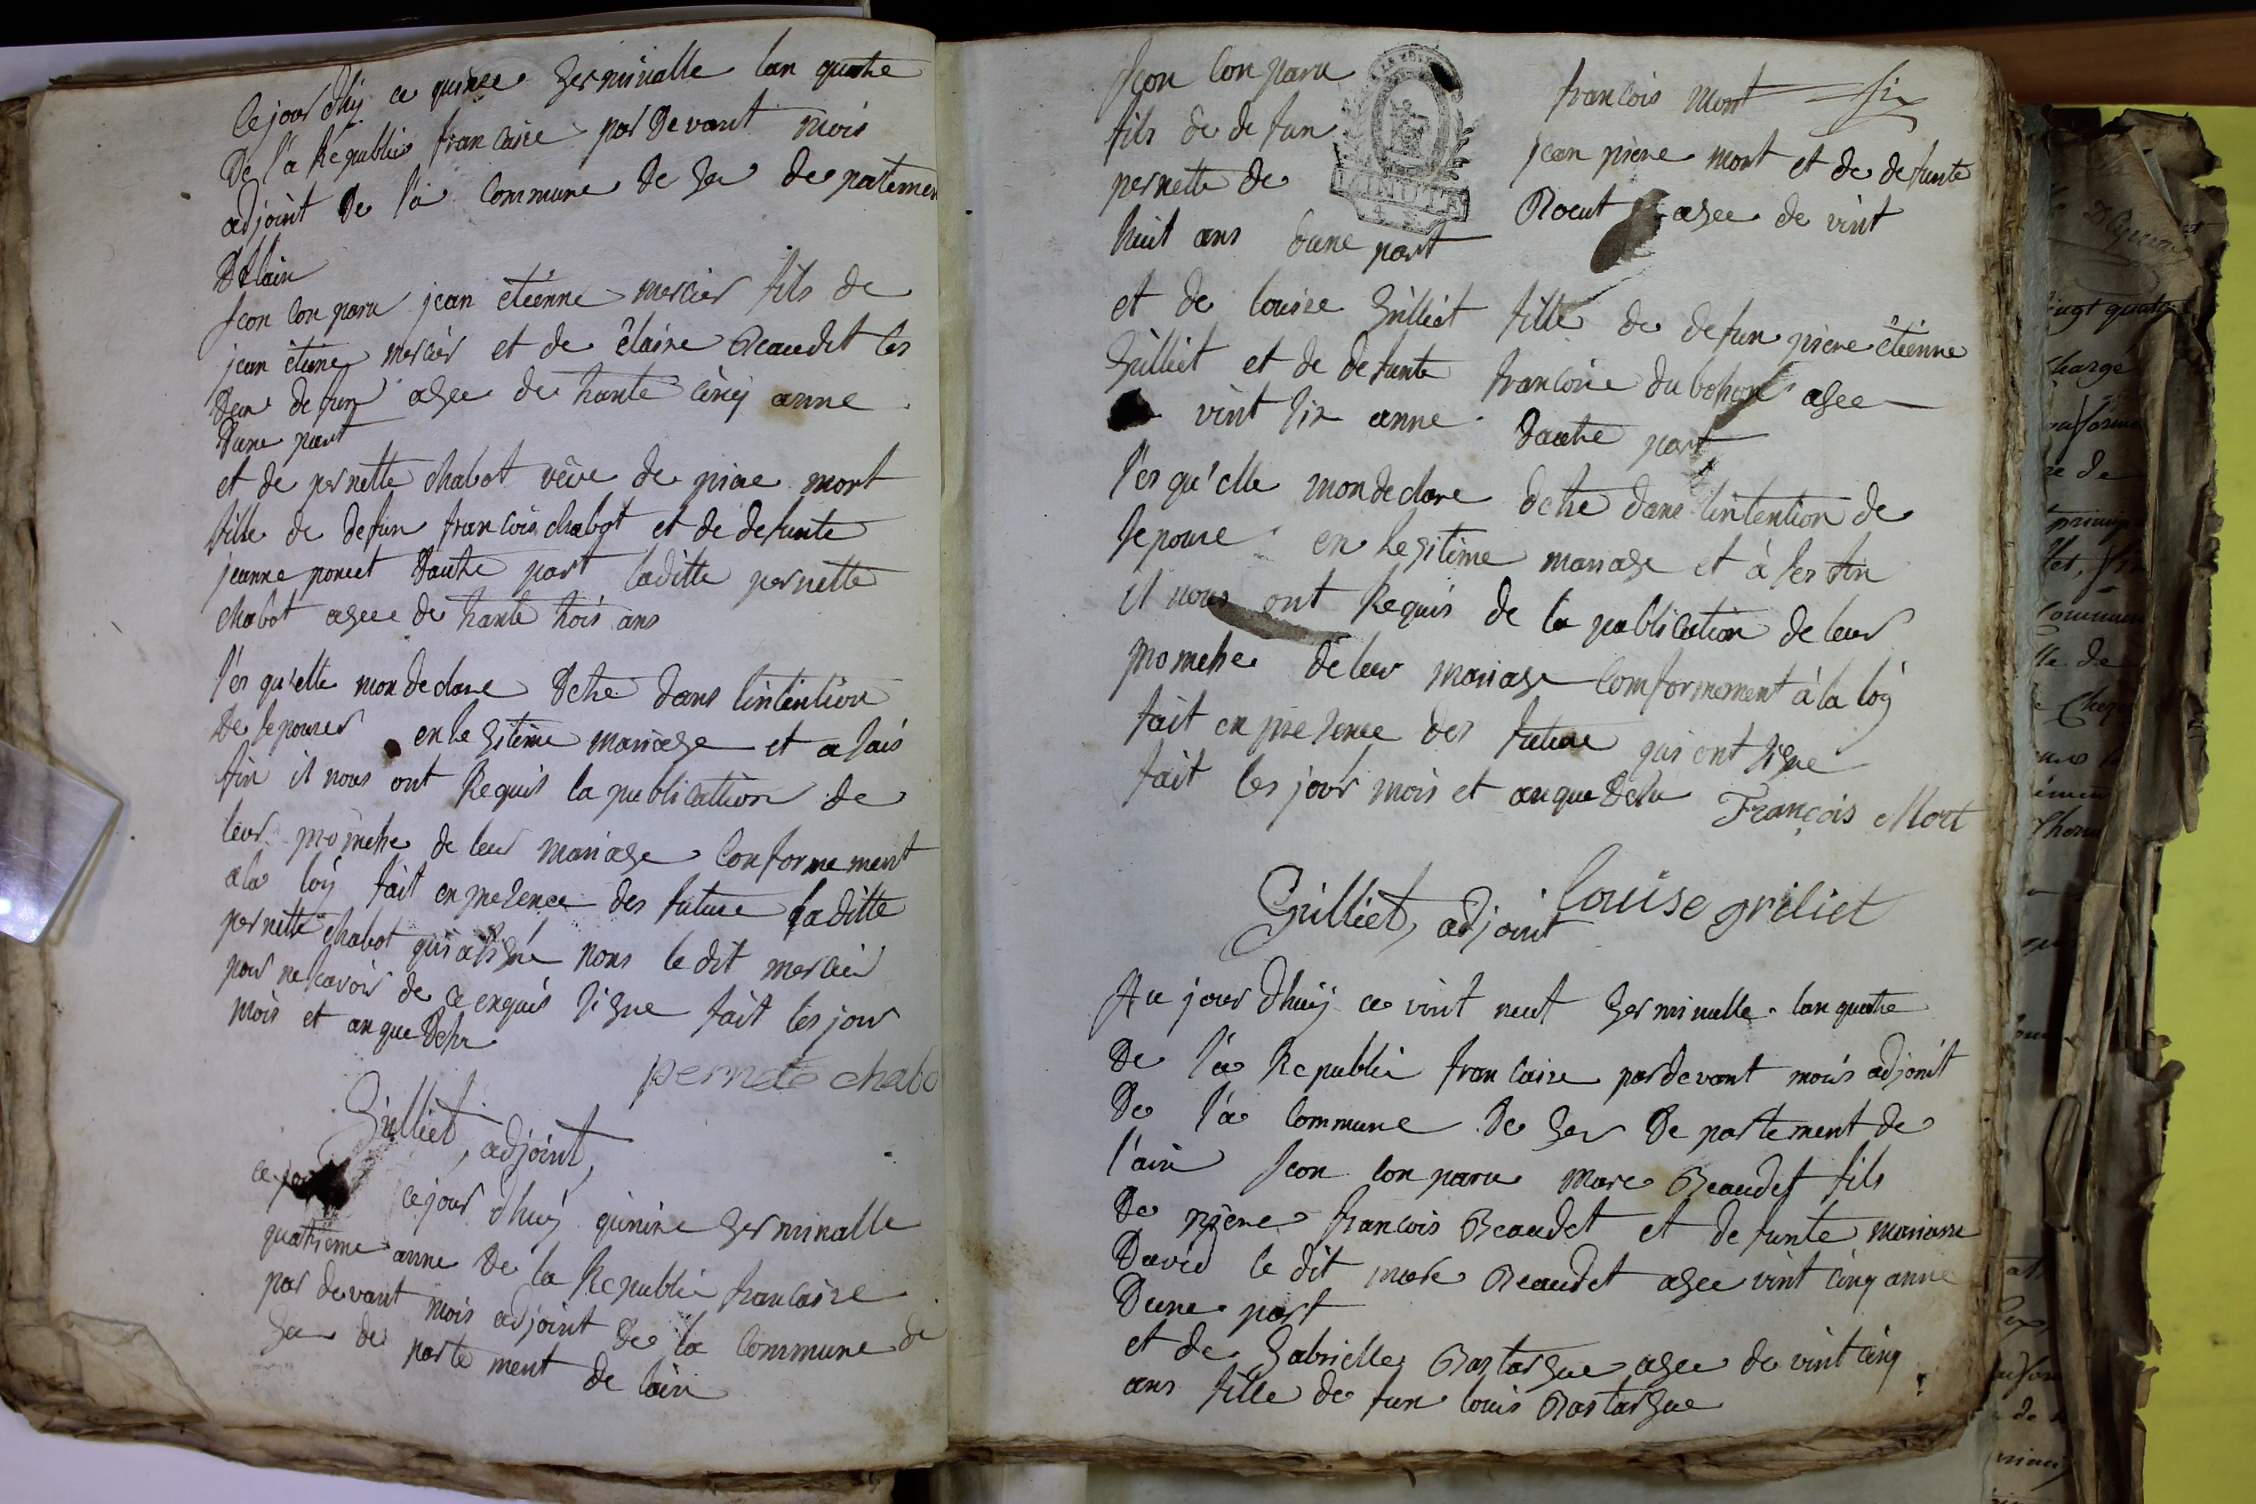 Cejour dhij ce quinze germinalle lan quatre
De l'à Republis francaise par Devant mois
adjoint De l'à commune de Gex departemen
Dtlain
Scon conparu jean etiénne mercier fils de
jean ètiene mercier et de claire Beaudet les
Deu defun agee de trante cinq anne
Dune part
et de pernette chabot véve de piere mort
fille de defun francois chabot et de defunte
jeanne poncet Dautre part laditte pernette
chabot agee de trante trois ans
l'es qu'elle mon declare Detre dans lintention
De sepouser en legitime mariage et a sais
fin il nous ont Requis la publication de
leur promehe de leur mariage conformement
ala loij fait en presence des future laditte
pernette chabot qui a signé nons le dit mercier
pour ne savoir de ce enquis signe fait les jour
mois et an que Desu
pernete chabo
Gilliet, adjoint,
ce jour
cejour dhuij quinire germinalle
quatrieme anne De la Republi francaise
par devant mois adjoint De la commune de
Gex de parte ment de lain
Scon conparu francois mort six
fils de de fun jean piere mort et de defunte
pernette de Rocut agee de vint
huit ans dune part
MINUTE
et de louise Gilliet fille de defun piere étienne
Gilliet et de defunte francoise dubohon agee
vint six anne Dautre part
l'es qu'elle mon declare detre dans lintention de
sepouse en legitime mariage et à ses fin
il nous ont Requis de la publication de leur
promehe de leur mariage comformement à la loij
fait en presence des future qui ont signe
fait les jour mois et anque Desu François Mort
louise griliet
Gilliet, adjoint
Au jour dhuij ce vint neuf germinalle lan quatre
De l'à Republi francaise pardevant mois adjoint
De l'à commune De Gex De partement de
l'ain Scon conparu Marc Beaudet fils
De piere francois Beaudet et defunte marianne
David le dit marc Beaudet agee vint cinq anne
Dune part
et de Gabrielle Bastargue agee de vint cinq
ans fille de fun louis Bastargue